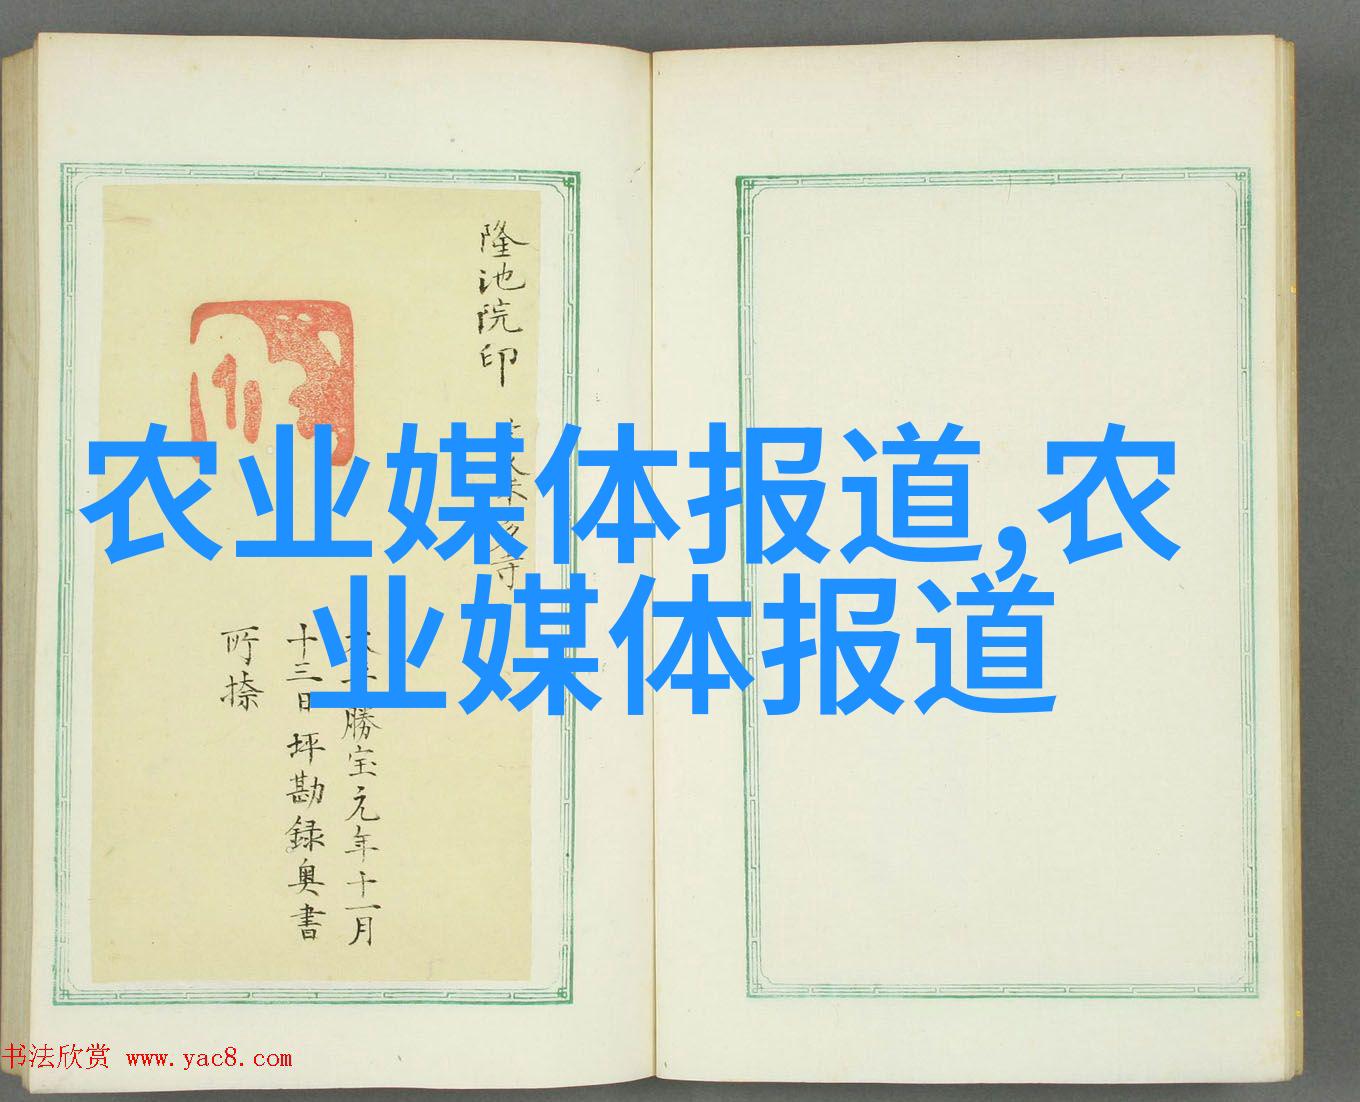 隆池院印
農業媒体报道,农
业媒体报道
勝宝元年十一月
十三日坪勘録奥書
所捺
书法欣赏 www.yac8.com